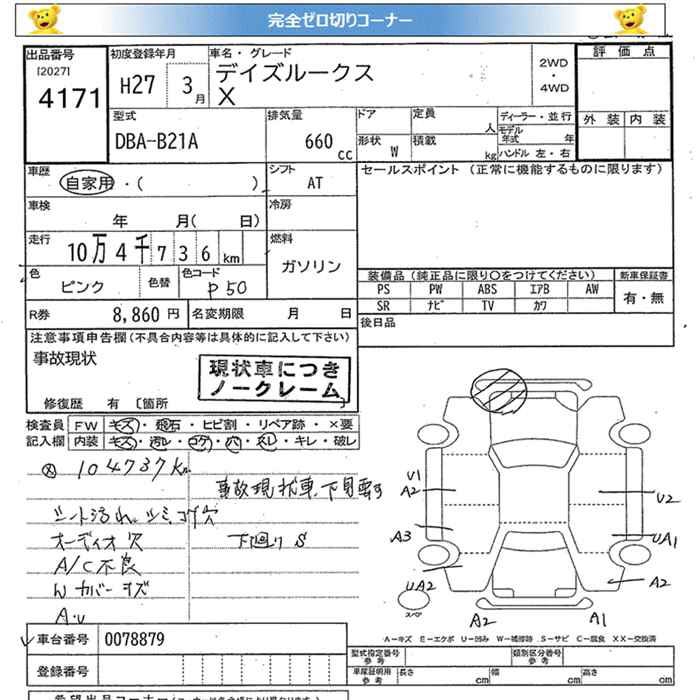 完全ゼロ切りコーナー
出品番号
[2027]
4171
初度登録年月
H27 3月
車名・グレード
デイズルークス
X
2WD
・
4WD
評価点
外装 内装
型式
DBA-B21A
排気量
660 cc
ドア
定員
人
形状
W
積載
kg
ディーラー・並行
モデル年式 年
ハンドル 左・右
車歴
自家用・( )
シフト
AT
セールスポイント (正常に機能するものに限ります)
車検
年 月( 日)
冷房
走行
10万4千736km
燃料
ガソリン
色
ピンク
色替
色コード
P50
装備品 (純正品に限り○をつけてください)
PS PW ABS エアB AW
SR ナビ TV カワ
新車保証書
有・無
R券 8,860 円
名変期限 月 日
後日品
注意事項申告欄 (不具合内容等は具体的に記入して下さい)
事故現状
現状車につき
ノークレーム
修復歴 有 [箇所
検査員記入欄
FW キズ・飛石・ヒビ割・リペア跡・×要
内装 キズ・汚レ・コゲ・穴・スレ・キレ・破レ
104737km
事故現状車
下回りS
シート汚れ
オーディオ穴
A/C不良
Wカバーキズ
V1
A2
A3
UA2
スペア
A2
A1
U2
UA1
A2
A-キズ E-エクボ U-凹み W-補修跡 S-サビ C-腐食 XX-交換済
車台番号 0078879
登録番号
型式指定番号
参考
類別区分番号
参考
車庫証明用
参考
長さ cm 幅 cm 高さ cm